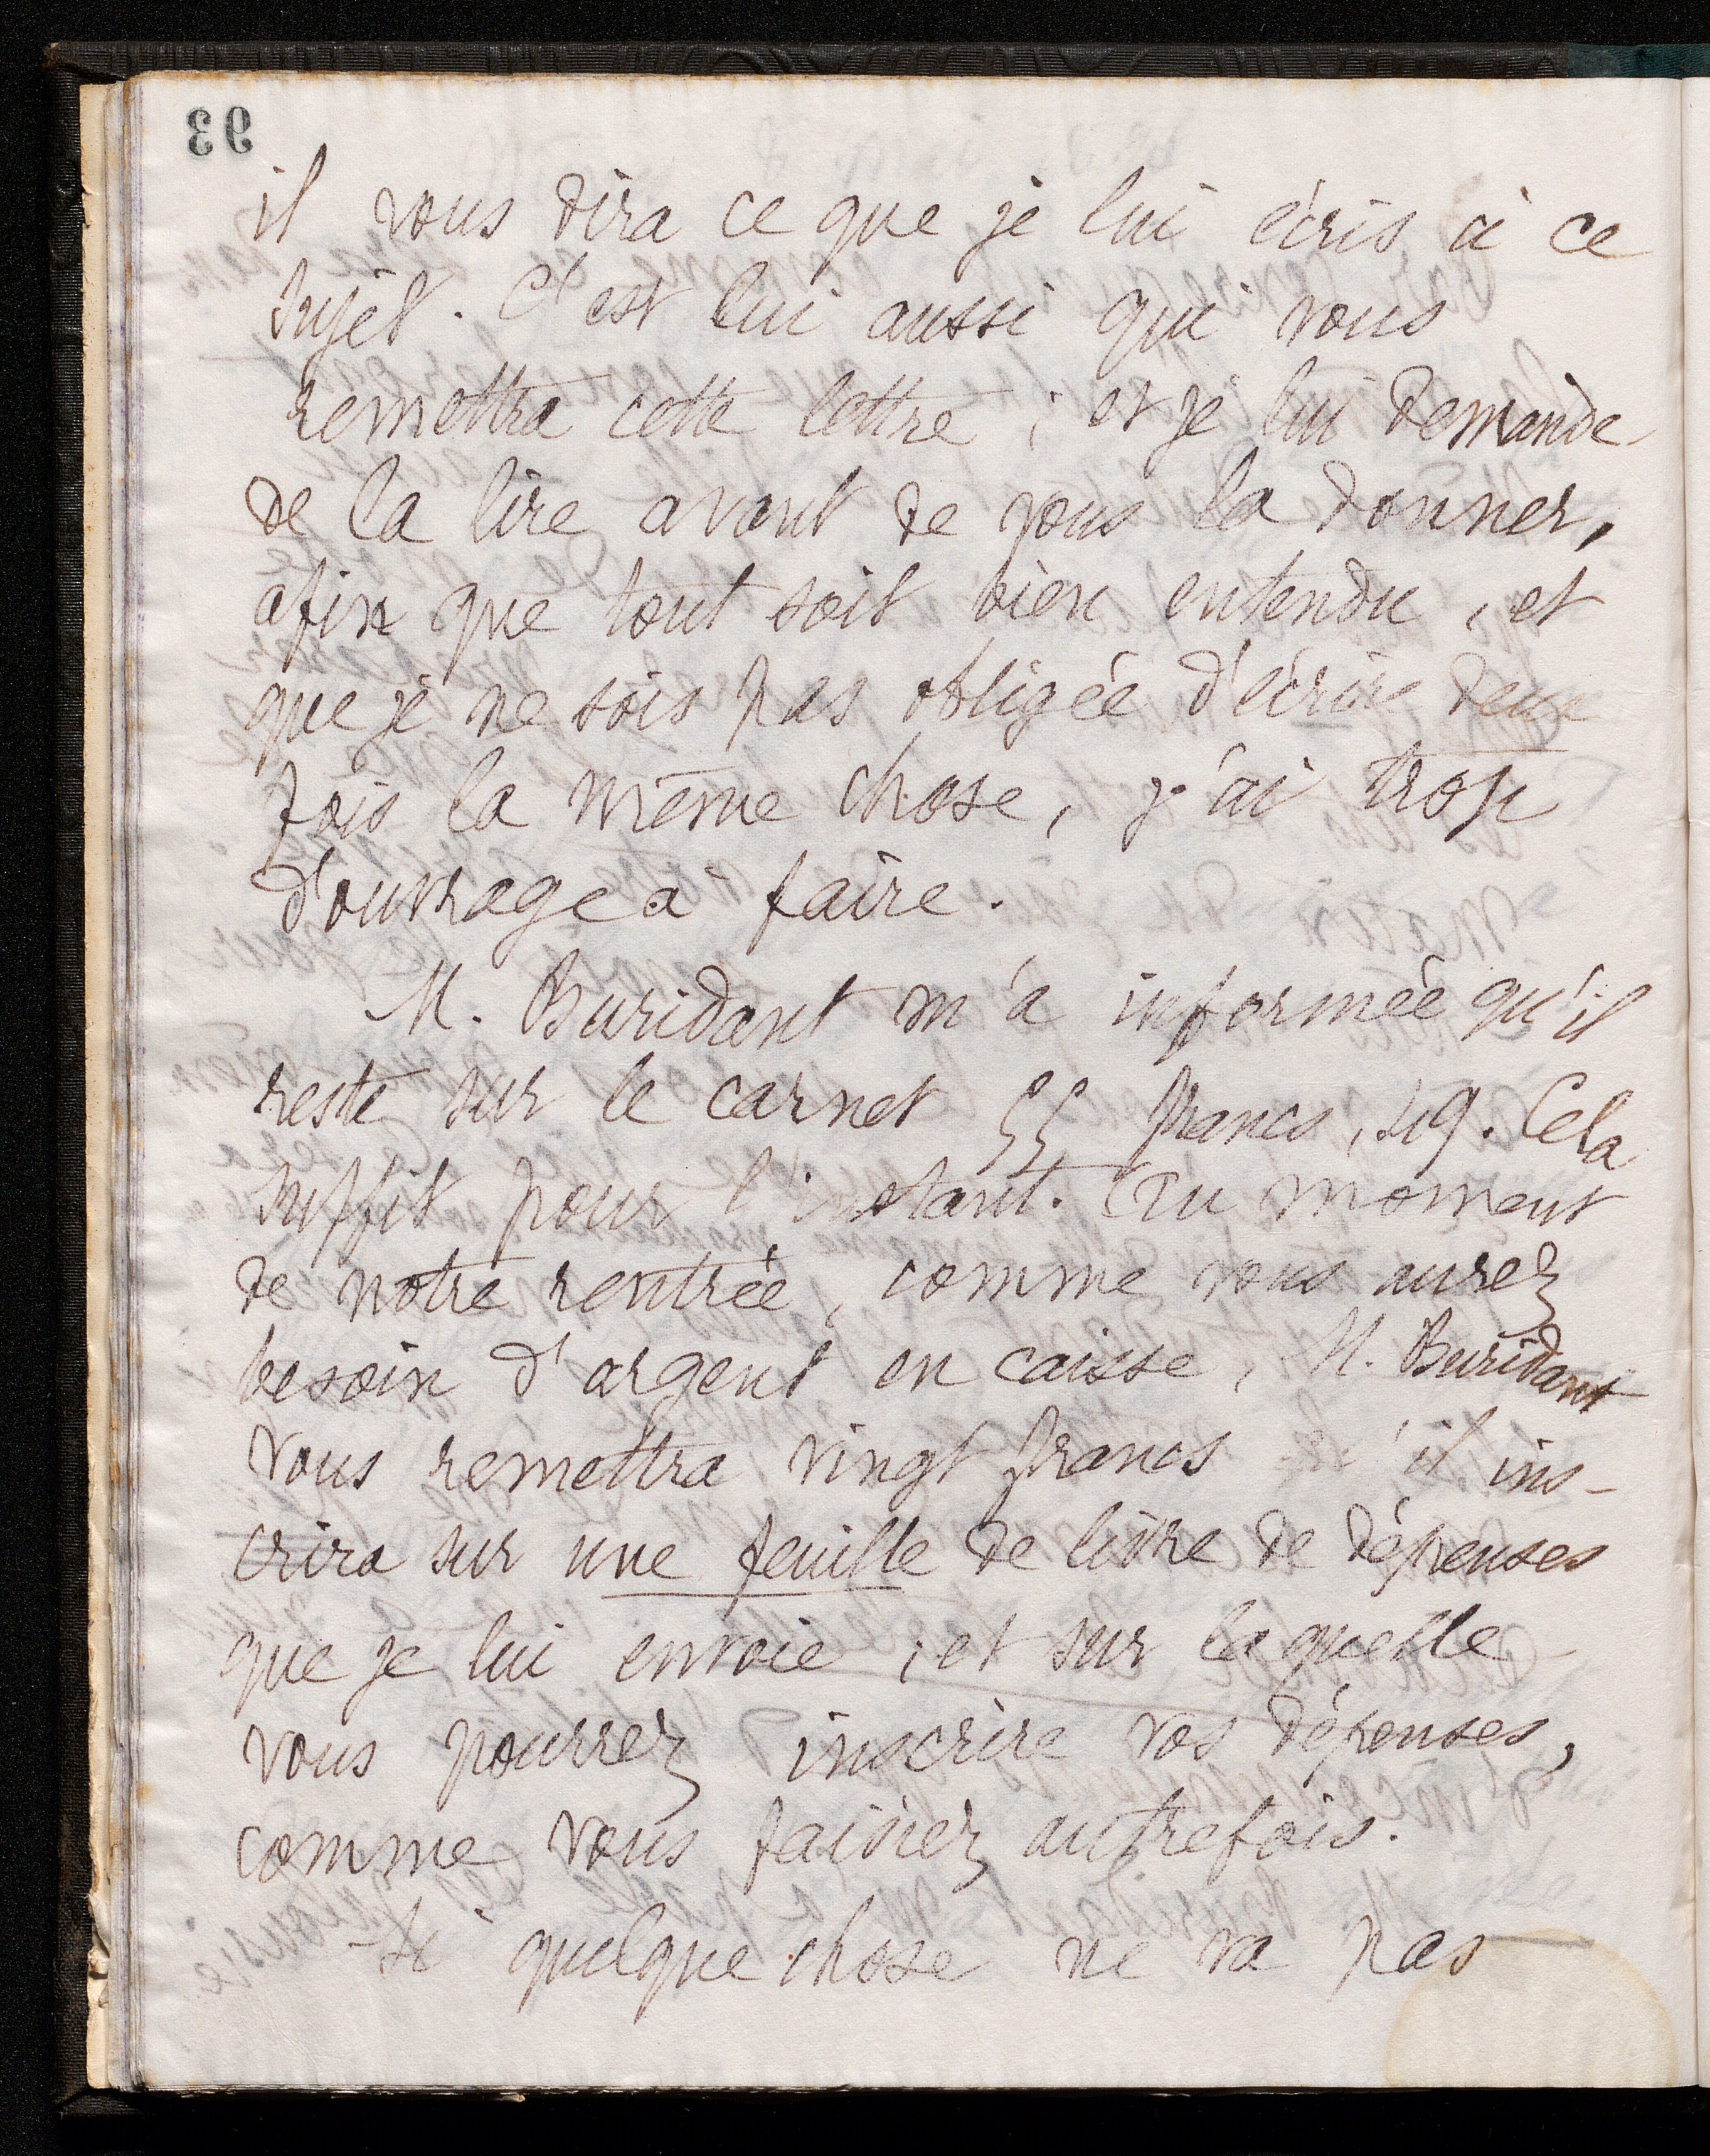 93
il vous dira ce que je lui écris à ce
sujet. C'est lui aussi qui vous
remettra cette lettre ; et je lui demande
de la lire avant de vous la donner,
afin que tout soit bien entendu, et
que je ne sois pas obligée d'écrire deux
fois la même chose, j'ai trop
d'ouvrage à faire.
M. Buridant m'a informée qu'il
reste sur le carnet 55 francs, 49. Cela
suffit pour l'instant. Au moment
de notre rentrée, comme vous aurez
besoin d'argent en caisse, M. Buridant
vous remettra vingt francs qu'il ins-
crira sur une feuille de livre de dépenses
que je lui envoie ; et sur laquelle
vous pourrez inscrire vos dépenses,
comme vous faisiez autrefois.
Si quelque chose ne va pas